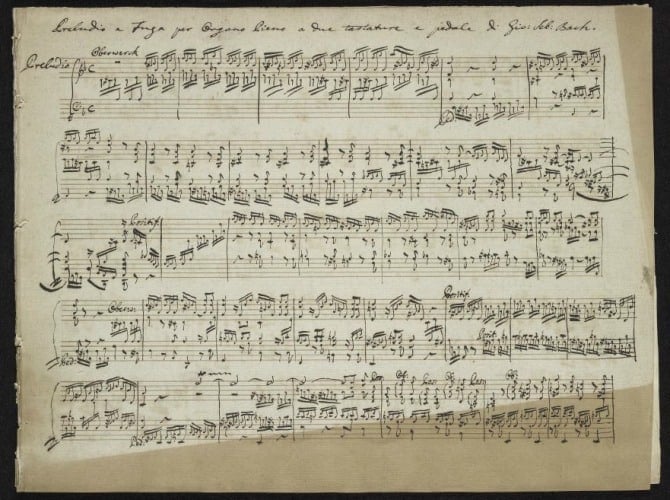 Preludio e Fuga per Organo pieno a due tastature e pedale di Gio: Seb. Bach.
Oberwerck
Preludio
Positif
Oberw.
Positif.
Ped.
Posit.